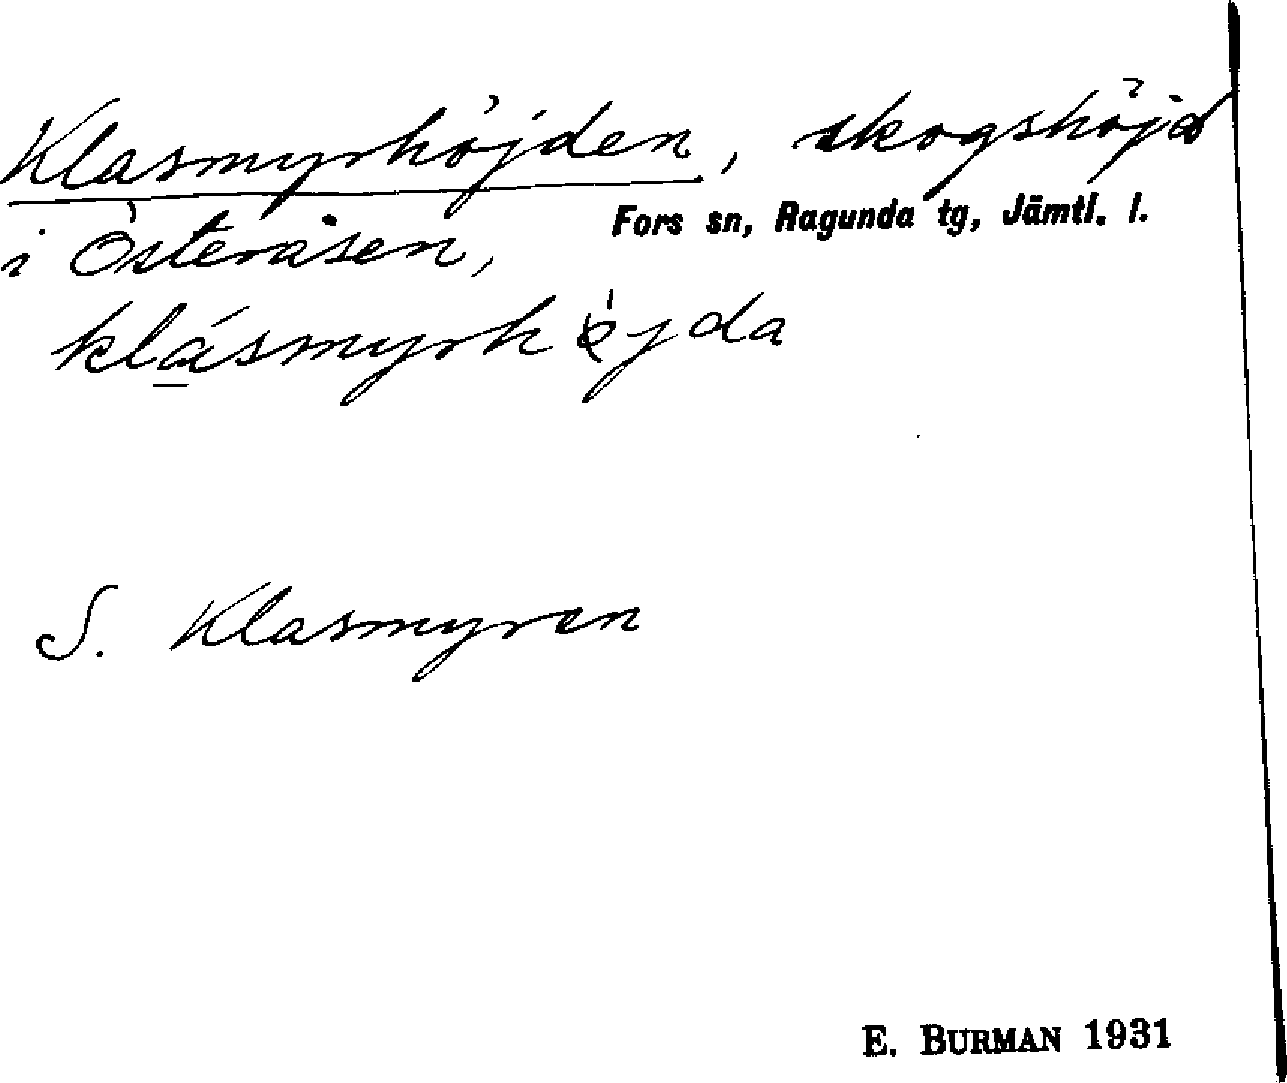 Klasmyrhöjden, skogshöjd
Fors sn, Ragunda tg, Jämtl. l.
i Österåsen,
klásmyrhöjda
S. Klasmyren
E. BURMAN 1931